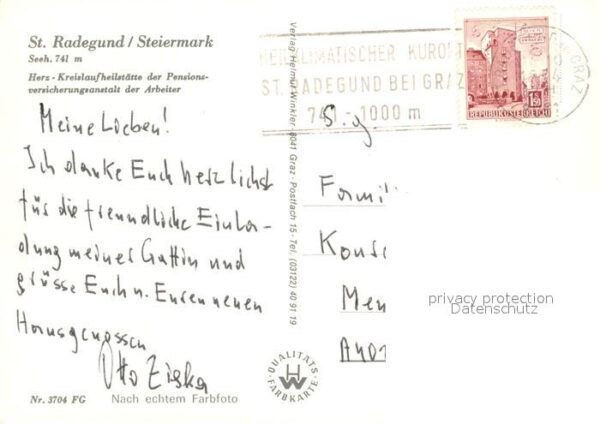 St. Radegund / Steiermark
Seeh. 741 m
Herz - Kreislaufheilstätte der Pensions-
versicherungsanstalt der Arbeiter
Meine Lieben!
Ich danke Euch herzlichst
für die freundliche Einla-
dung meiner Gattin und
grüsse Euch u. Euren neuen
Hausgenossen
Otto Ziska
Nr. 3704 FG
Nach echtem Farbfoto
Verlag Helmut Winkler · 8041 Graz · Postfach 15 · Tel. (03122) 40 91 19
QUALITÄTS
HW
FARBKARTE
HEILKLIMATISCHER KURORT
ST. RADEGUND BEI GRAZ
741 - 1000 m
GRAZ
1.50
REPUBLIK ÖSTERREICH
S. g.
Famili
Kons
Men
A402
privacy protection
Datenschutz